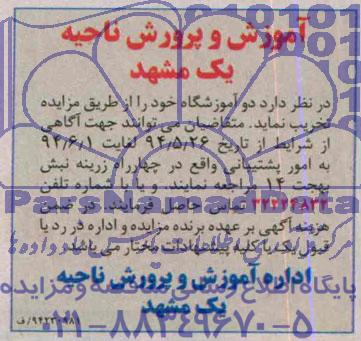 آموزش و پرورش ناحیه
یک مشهد
در نظر دارد دو آموزشگاه خود را از طریق مزایده
تخریب نماید. متقاضیان می توانند جهت آگاهی
از شرایط از تاریخ ۹۴/۵/۲۶ لغایت ۹۴/۶/۱
به امور پشتیبانی واقع در چهارراه زرینه نبش
بهجت ۱۴ مراجعه نمایند. و یا با شماره تلفن
۳۲۲۲۴۸۳۲ تماس حاصل فرمایند. در ضمن
هزینه آگهی بر عهده برنده مزایده و اداره در رد یا
قبول یک یا کلیه پیشنهادات مختار می باشد
اداره آموزش و پرورش ناحیه
یک مشهد
۹۴۲۳۰۹۸۱/ف
پایگاه اطلاع رسانی مناقصه و مزایده
۰۲۱-۸۸۳۴۹۶۷۰-۵